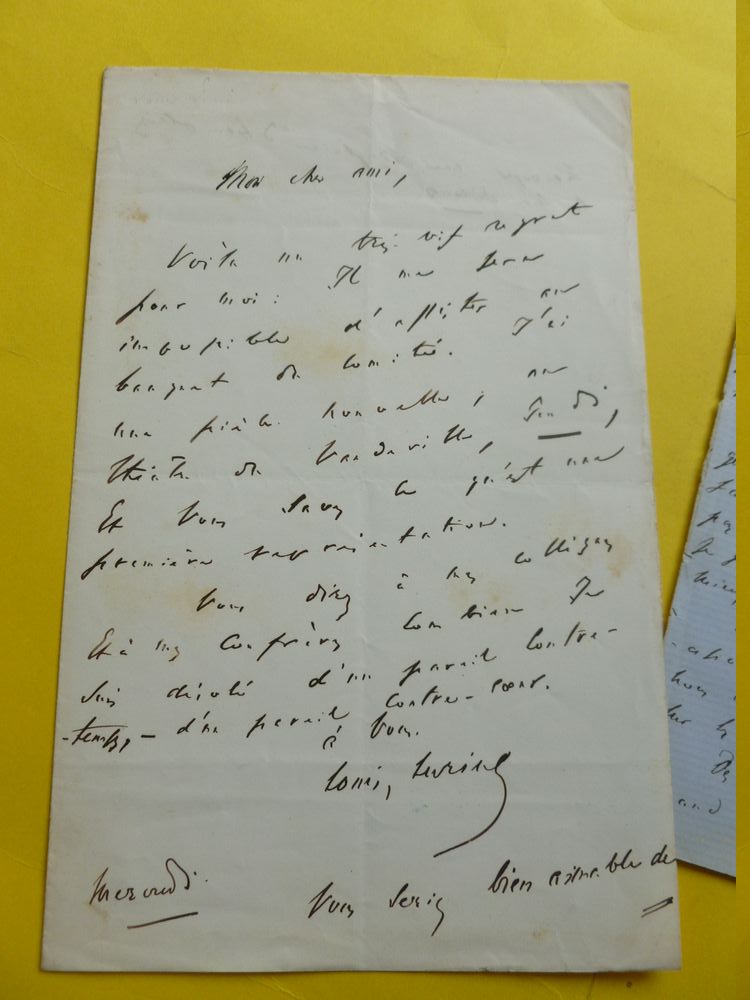 Mon cher ami,
Voilà un très vif regret
pour moi : Il me sera
impossible d'assister au
banquet du Comité. J'ai
une pièce nouvelle, au
théâtre du Vaudeville, Jeudi,
Et vous savez ce qu'est une
première représentation.
Vous direz à mes collègues
Et à mes Confrères combien Je
suis désolé d'un pareil contre-
-temps, – d'un pareil contre-cœur.
à vous.
Louis Lurine
Mercredi.
Vous seriez bien aimable de